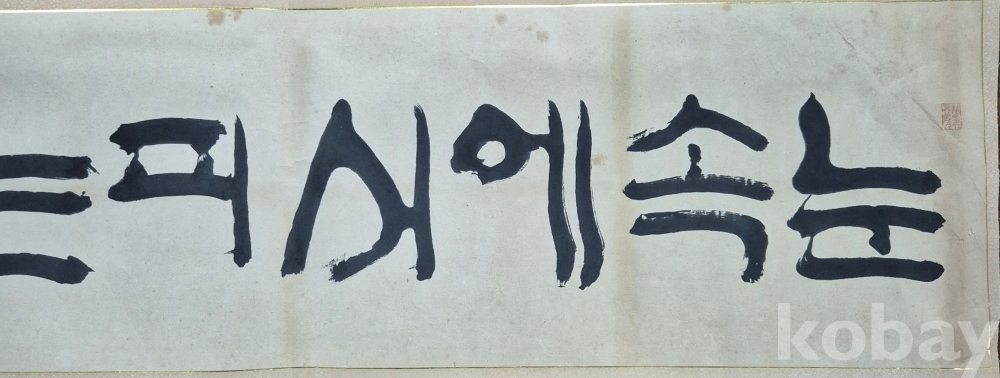 눈속에서피
kobay